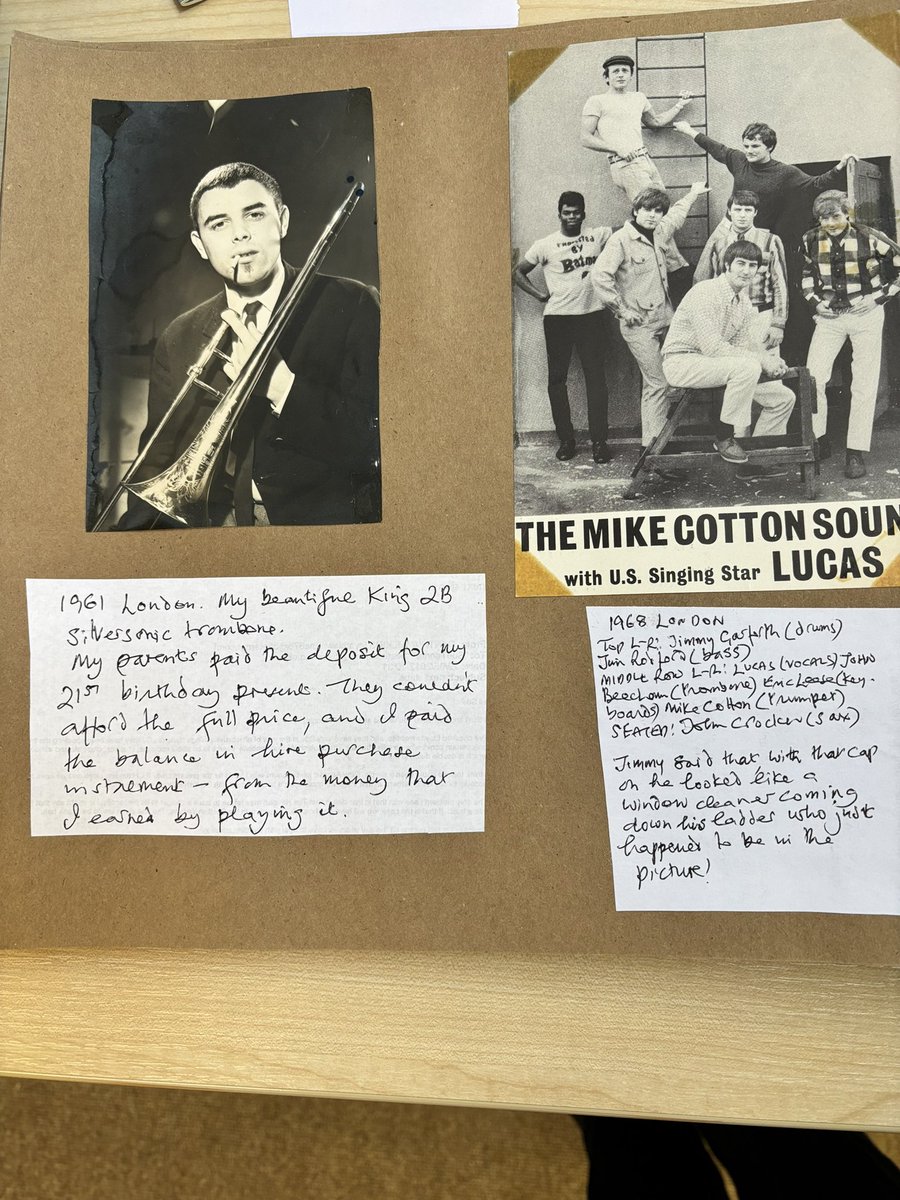 1961 London. My beautiful King 2B
Silversonic trombone.
My parents paid the deposit for my
21st birthday present. They couldn't
afford the full price, and I paid
the balance in hire purchase
instalment – from the money that
I earned by playing it.
PROTECTED
BY
Batm
THE MIKE COTTON SOUN
with U.S. Singing Star LUCAS
1968 LONDON
TOP L-R: Jimmy Garforth (drums)
Jim Rodford (bass)
MIDDLE ROW L-R: LUCAS (vocals) JOHN
Beecham (trombone) Eric Lease (key-
boards) Mike Cotton (trumpet)
SEATED: John Crocker (sax)
Jimmy said that with that cap
on he looked like a
window cleaner coming
down his ladder who just
happened to be in the
picture!